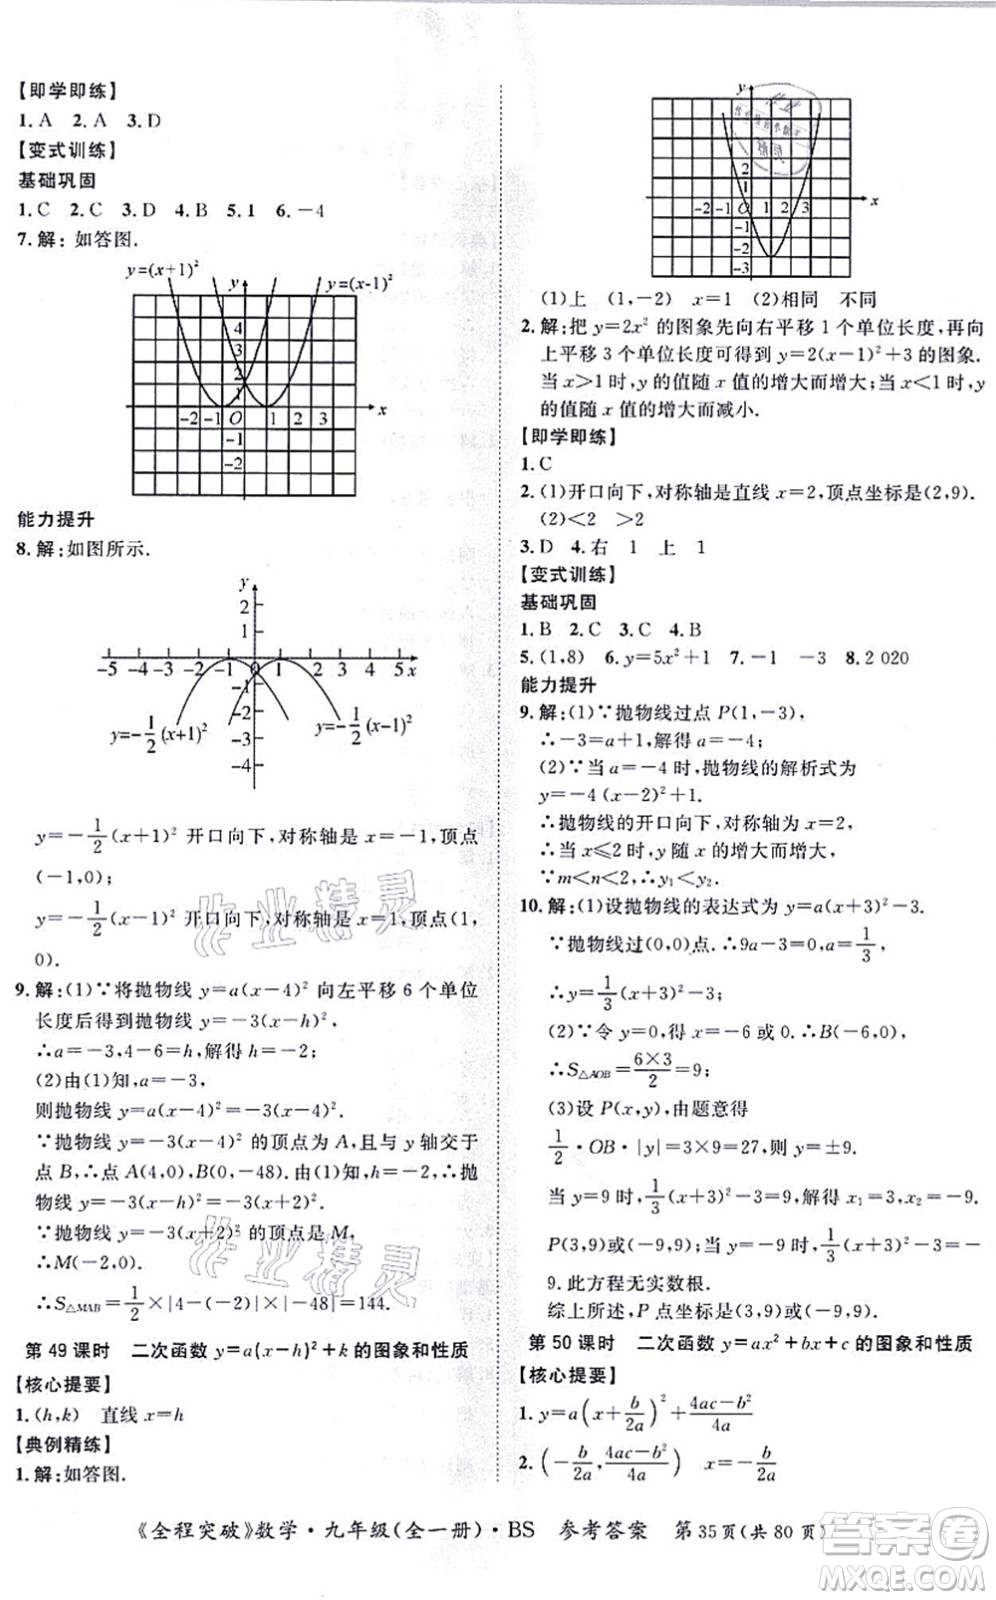 【即学即练】
1. A 2. A 3. D
【变式训练】
基础巩固
1. C 2. C 3. D 4. B 5. 1 6. －4
7. 解:如答图.
y=(x+1)² y y=(x-1)²
4
3
2
1
-2 -1 O 1 2 3 x
-1
-2
能力提升
8. 解:如图所示.
y
2
1
-5 -4 -3 -2 -1 0 1 2 3 4 5 x
-1
-2
-3
-4
y=-1/2(x+1)² y=-1/2(x-1)²
y=－1/2(x+1)² 开口向下,对称轴是 x=－1,顶点
(－1,0);
y=－1/2(x－1)² 开口向下,对称轴是 x=1,顶点(1,
0).
9. 解:(1)∵将抛物线 y=a(x－4)² 向左平移 6 个单位
长度后得到抛物线 y=－3(x－h)²,
∴a=－3,4－6=h,解得 h=－2;
(2)由(1)知,a=－3,
则抛物线 y=a(x－4)²=－3(x－4)².
∵抛物线 y=－3(x－4)² 的顶点为 A,且与 y 轴交于
点 B,∴点 A(4,0),B(0,－48).由(1)可知 h=－2,∴抛
物线 y=－3(x－h)²=－3(x+2)².
∵抛物线 y=－3(x+2)² 的顶点是 M,
∴M(－2,0).
∴S△MAB=1/2×|4－(－2)|×|－48|=144.
第 49 课时 二次函数 y=a(x－h)²+k 的图象和性质
【核心提要】
1. (h,k) 直线 x=h
【典例精练】
1. 解:如答图.
y
2
1
-2 -1 O 1 2 3 x
-2
-3
(1)上 (1,－2) x=1 (2)相同 不同
2. 解:把 y=2x² 的图象先向右平移 1 个单位长度,再向
上平移 3 个单位长度可得到 y=2(x－1)²+3 的图象.
当 x>1 时,y 的值随 x 值的增大而增大;当 x<1 时,y
的值随 x 值的增大而减小.
【即学即练】
1. C
2. (1)开口向下,对称轴是直线 x=2,顶点坐标是(2,9).
(2)<2 >2
3. D 4. 右 1 上 1
【变式训练】
基础巩固
1. B 2. C 3. C 4. B
5. (1,8) 6. y=5x²+1 7. －1 －3 8. 2 020
能力提升
9. 解:(1)∵抛物线过点 P(1,－3),
∴－3=a+1,解得 a=－4;
(2)∵当 a=－4 时,抛物线的解析式为
y=－4(x－2)²+2.
∴抛物线的开口向下,对称轴为 x=2,
∴当 x≤2 时,y 随 x 的增大而增大,
∵m<n<2,∴y₁<y₂.
10. 解:(1)设抛物线的表达式为 y=a(x+3)²－3.
∵抛物线过(0,0)点.∴9a－3=0,∴a=1/3,
∴y=1/3(x+3)²－3;
(2)∵令 y=0,得 x=－6 或0.∴B(－6,0),
∴S△AOB=6×3/2=9;
(3)设 P(x,y),由题意得
1/2·OB·|y|=3×9=27,则 y=±9.
当 y=9 时,1/3(x+3)²－3=9,解得 x₁=3,x₂=－9.
P(3,9)或(－9,9);当 y=－9 时,1/3(x+3)²－3=－
9.此方程无实数根.
综上所述,P 点坐标为(3,9)或(－9,9).
第 50 课时 二次函数 y=ax²+bx+c 的图象和性质
【核心提要】
1. y=a(x+b/2a)²+4ac－b²/4a
2. (－b/2a,4ac－b²/4a) x=－b/2a
《全程突破》数学·九年级(全一册)·BS 参考答案 第35页(共 80 页)
作业精灵
作业精灵
答案圈
MXQE.COM